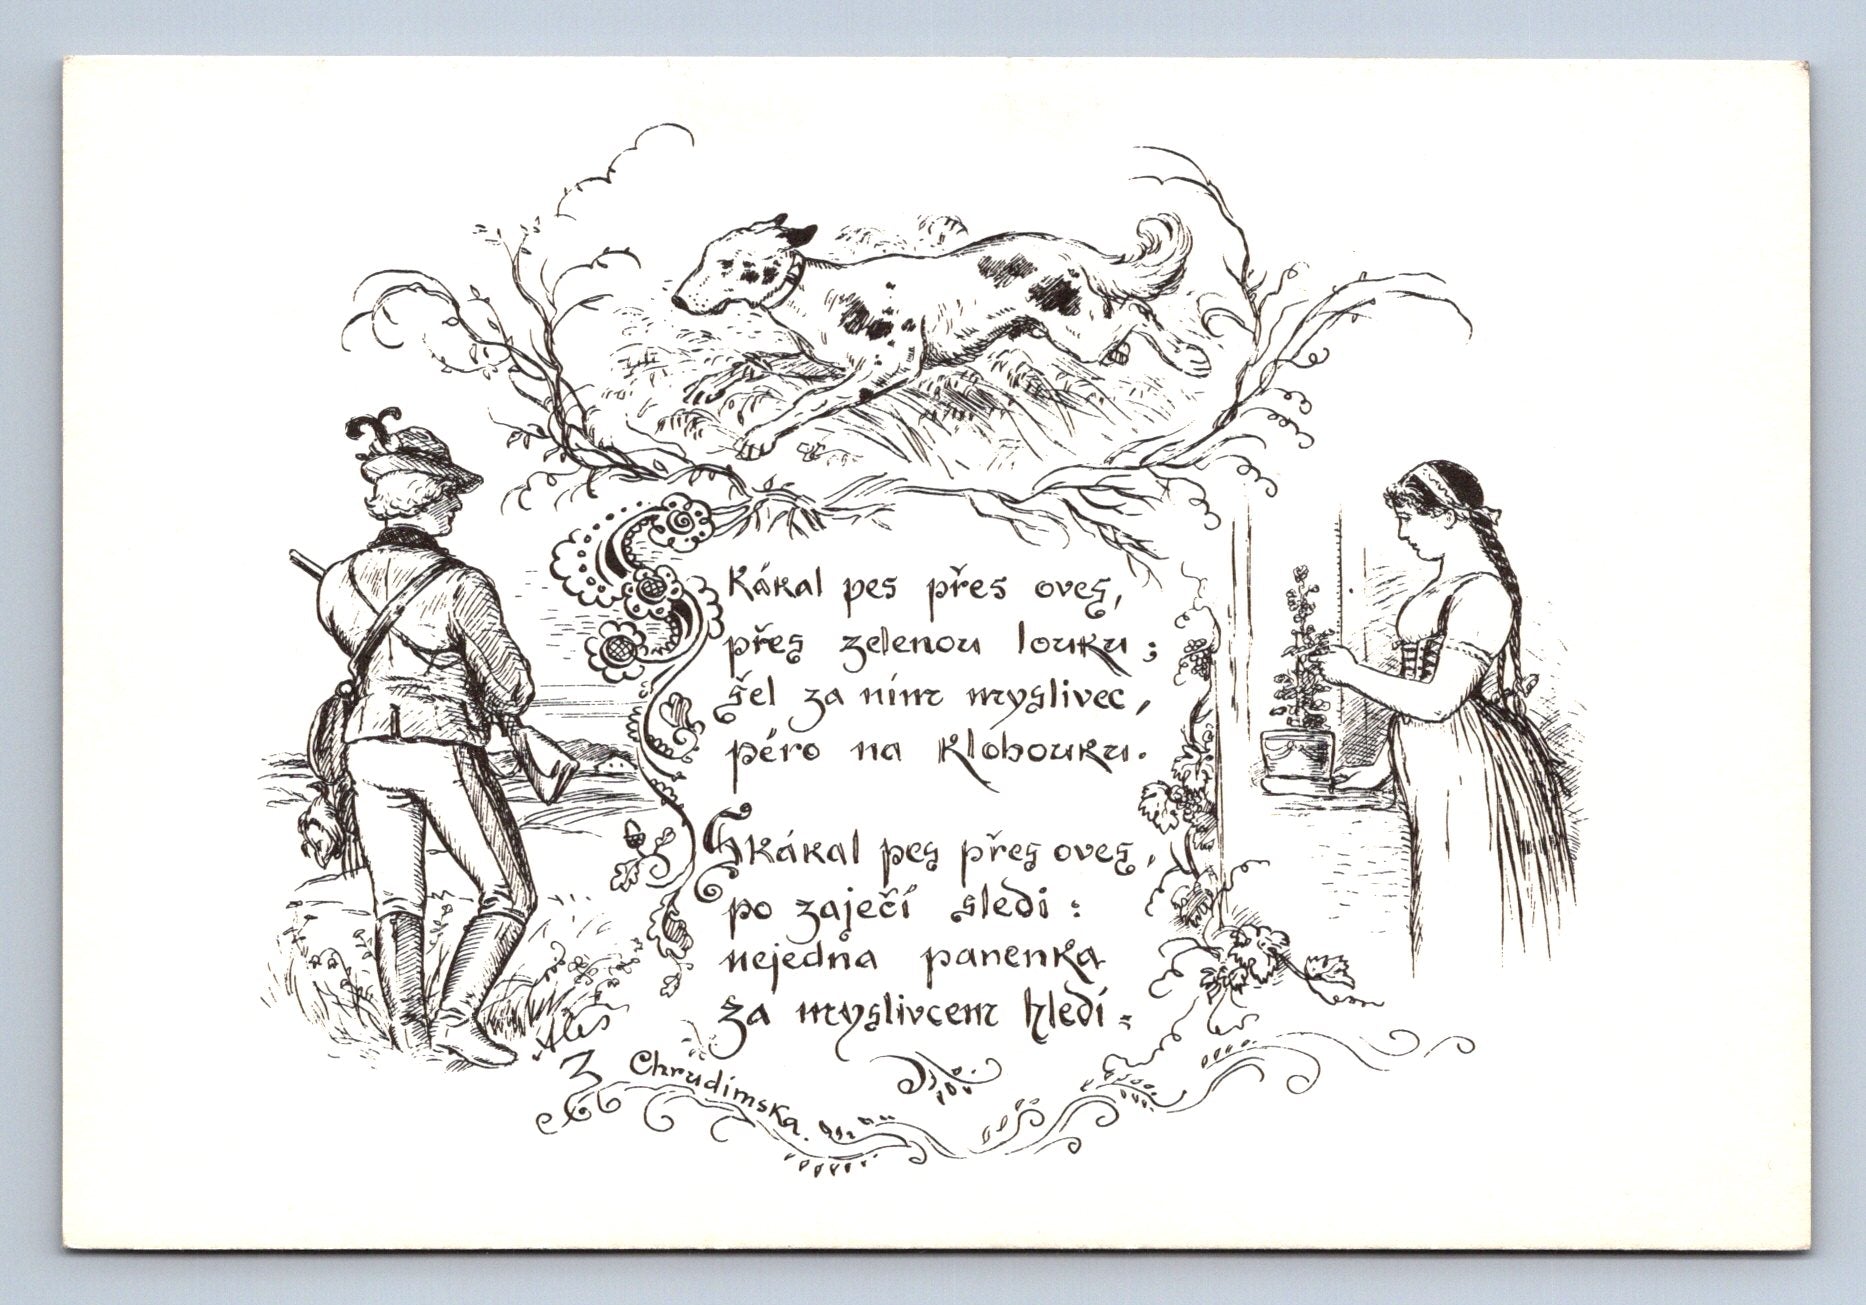 Skákal pes přes oves,
přes zelenou louku ;
šel za ním myslivec,
péro na klobouku.
Skákal pes přes oves,
po zaječí sledi :
nejedna panenka
za myslivcem hledí :
Aleš
Z Chrudimska.